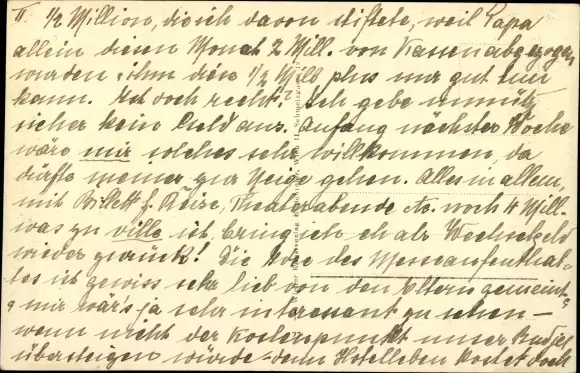 II. 1/2 Million, die ich davon stiftete, weil Papa
allein diesen Monat 2 Mill. von Kassen abgezogen
wurden u. ihm diese 1/2 Mill. plus nur gut tun
kann. Ist doch recht? Ich gebe unnütz
sicher kein Geld aus. Anfang nächster Woche
wäre mir solches sehr willkommen, da
dürfte meiner zur Neige gehen. Alles in allem,
mit Billett f. Reise, Theaterabende etc. noch 4 Mill.
was zu viele ist, bring ich eh als Wechselgeld
wieder zurück! Die Idee des Messeaufenthal-
tes ist gewiss sehr lieb von den Eltern gemeint
mir wär's ja sehr interessant zu sehen –
wenn nicht der Kostenpunkt unser Budget
übersteigen würde - denn Hotelleben kostet doch